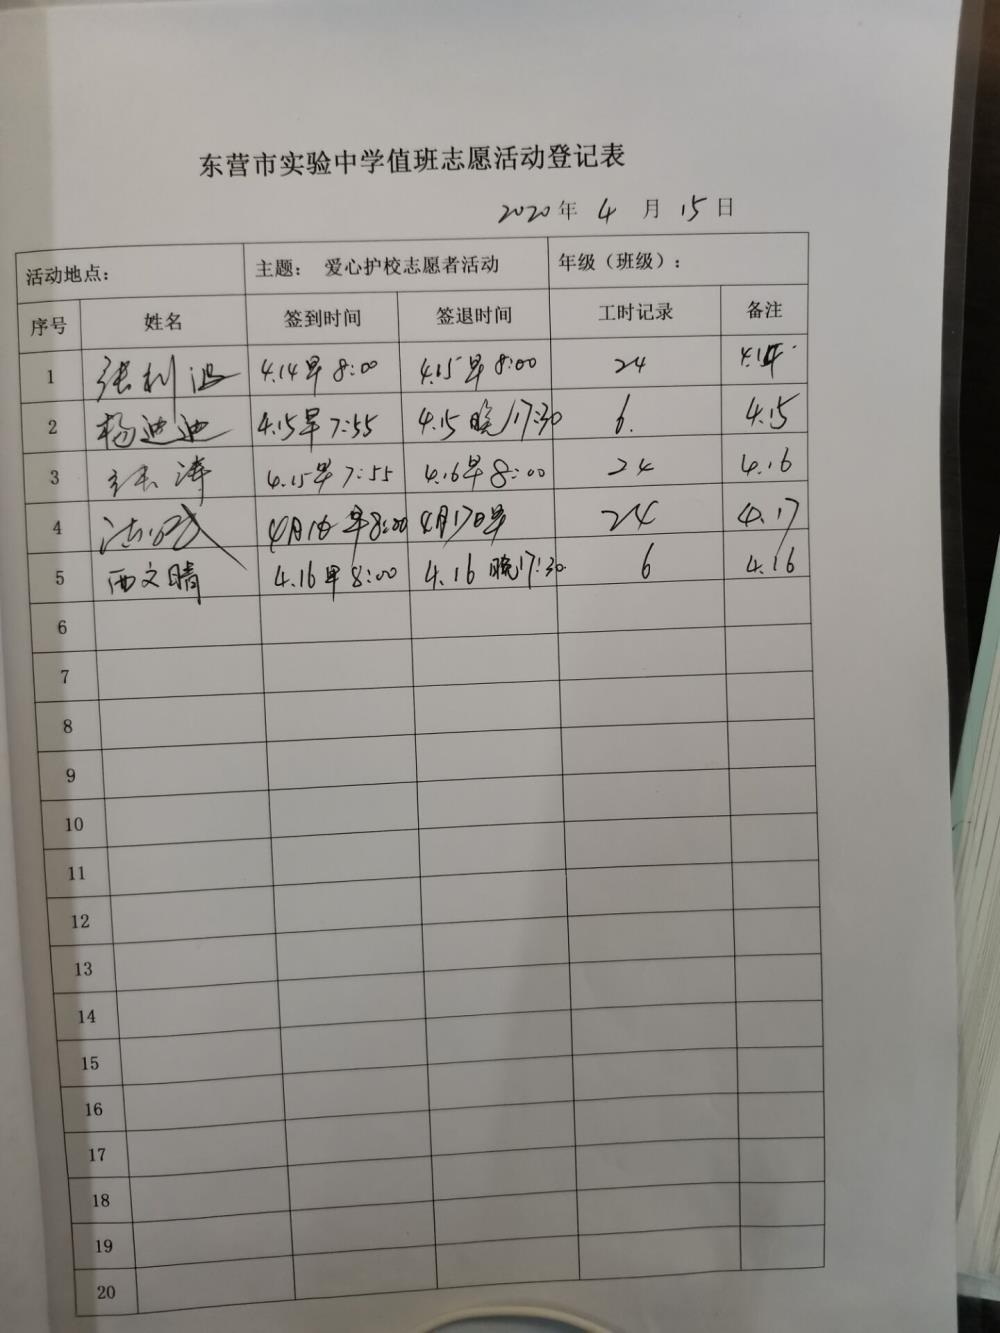 东营市实验中学值班志愿活动登记表
2020年 4 月 15日
活动地点： 主题： 爱心护校志愿者活动 年级（班级）：
序号 姓名 签到时间 签退时间 工时记录 备注
1 张利波 4.14早8:00 4.15早8:00 24 4.14
2 杨迪迪 4.15早7:55 4.15晚17:30 6. 4.15
3 张涛 4.15早7:55 4.16早8:00 24 4.16
4 4月16早8:00 4月17日早 24 4.17
5 西文晴 4.16早8:00 4.16晚17:30. 6 4.16
6
7
8
9
10
11
12
13
14
15
16
17
18
19
20